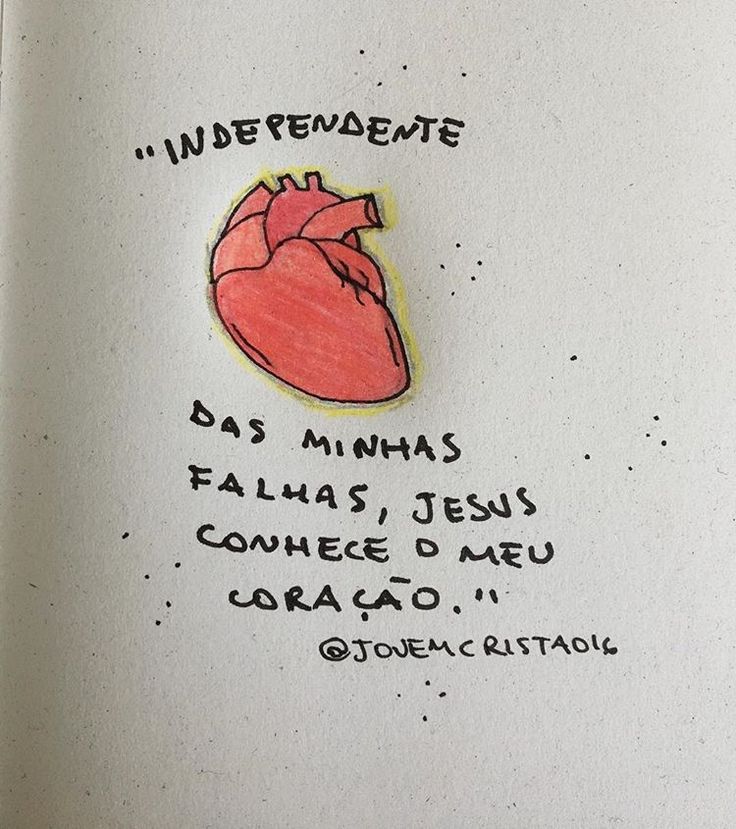 "INDEPENDENTE
DAS MINHAS
FALHAS, JESUS
CONHECE O MEU
CORAÇÃO."
@JOVEMCRISTAO16